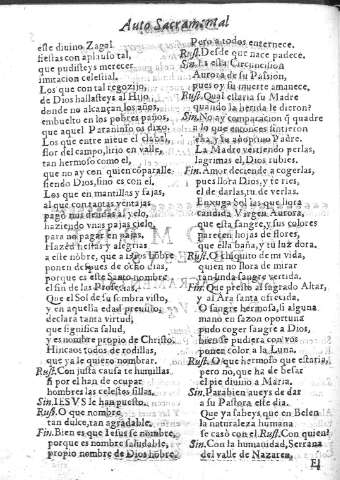 Auto Sacramental
este divino Zagal
fiestas con aplauso tal,
que pudisteys merecer
imitacion celestial.
Los que con tal regozijo,
de Dios hallasteys al Hijo
donde no alcançan los años,
embuelto en los pobres paños,
que aquel Paraninfo os dixo.
Los que entre nieve el clabel,
flor del campo, lirio en valle,
tan hermoso como el,
que no ay con quien cóparalle
siendo Dios, sino es con el.
Los que en mantillas y fajas,
al que con tantas ventajas
pagò mis deudas al yelo,
haziendo unas pajas cielo,
para no pagar en pajas.
Hazed fiestas y alegrias
a este nóbre, que a
ponen despues de ocho dias,
porque es este Santo nombre
el fin de las Profecias.
Que el Sol de su sombra visto,
y en aquella edad previsto,
declara tanta virtud,
que significa salud,
y es nombre propio de Christo.
Hincaos todos de rodillas,
que ya le quiero nombrar.
Rust. Con justa causa te humillas
si por el han de ocupar
hombres las celestes sillas.
Sin. IESVS le han puesto.
Rust. O que nombre
tan dulce, tan agradable.
Fin. Bien es que Iesus se nombre,
porque es nombre saludable,
propio nombre de Dios hóbre.
Pero a todos enternece.
Rust. Desde que nace padece.
Sin. Es esta Circuncision
Aurora de su Passion,
pues oy su muerte amanece.
Rust. Qual estaria su Madre
quando la herida le dieron?
Sin. No ay comparacion q̃ quadre
a lo que entonces sintieron
ella, y su adoptivo Padre.
La Madre vertiendo perlas,
lagrimas el, Dios rubies.
Fin. Amor deciende a cogerlas,
pues llora Dios, y te ries,
el de darlas, tu de verlas.
Enxuga Sol las que llora
candida Virgen Aurora,
que ella sangre, y sus colores
parecen hojas de flores,
que ella baña, y tu luz dora.
Rust. O chiquito de mi vida,
quien no llora de mirar
tan linda sangre vertida.
Fin. Que presto al sagrado Altar,
y al Ara santa ofrecida,
O sangre hermosa, si alguna
mano en sazon oportuna
pudo coger sangre a Dios,
bien se pudiera con vos
poner color a la Luna.
Rust. O que hermoso que estaria,
pero no, que ha de besar
el pie divino a Maria.
Sin. Parabien aueys de dar
a su Pastora este dia.
Que ya sabeys, que en Belen
la naturaleza humana
se casò con el. Rust. Con quien?
Sin. Con la humanidad, Serrana
del valle de Nazaren,